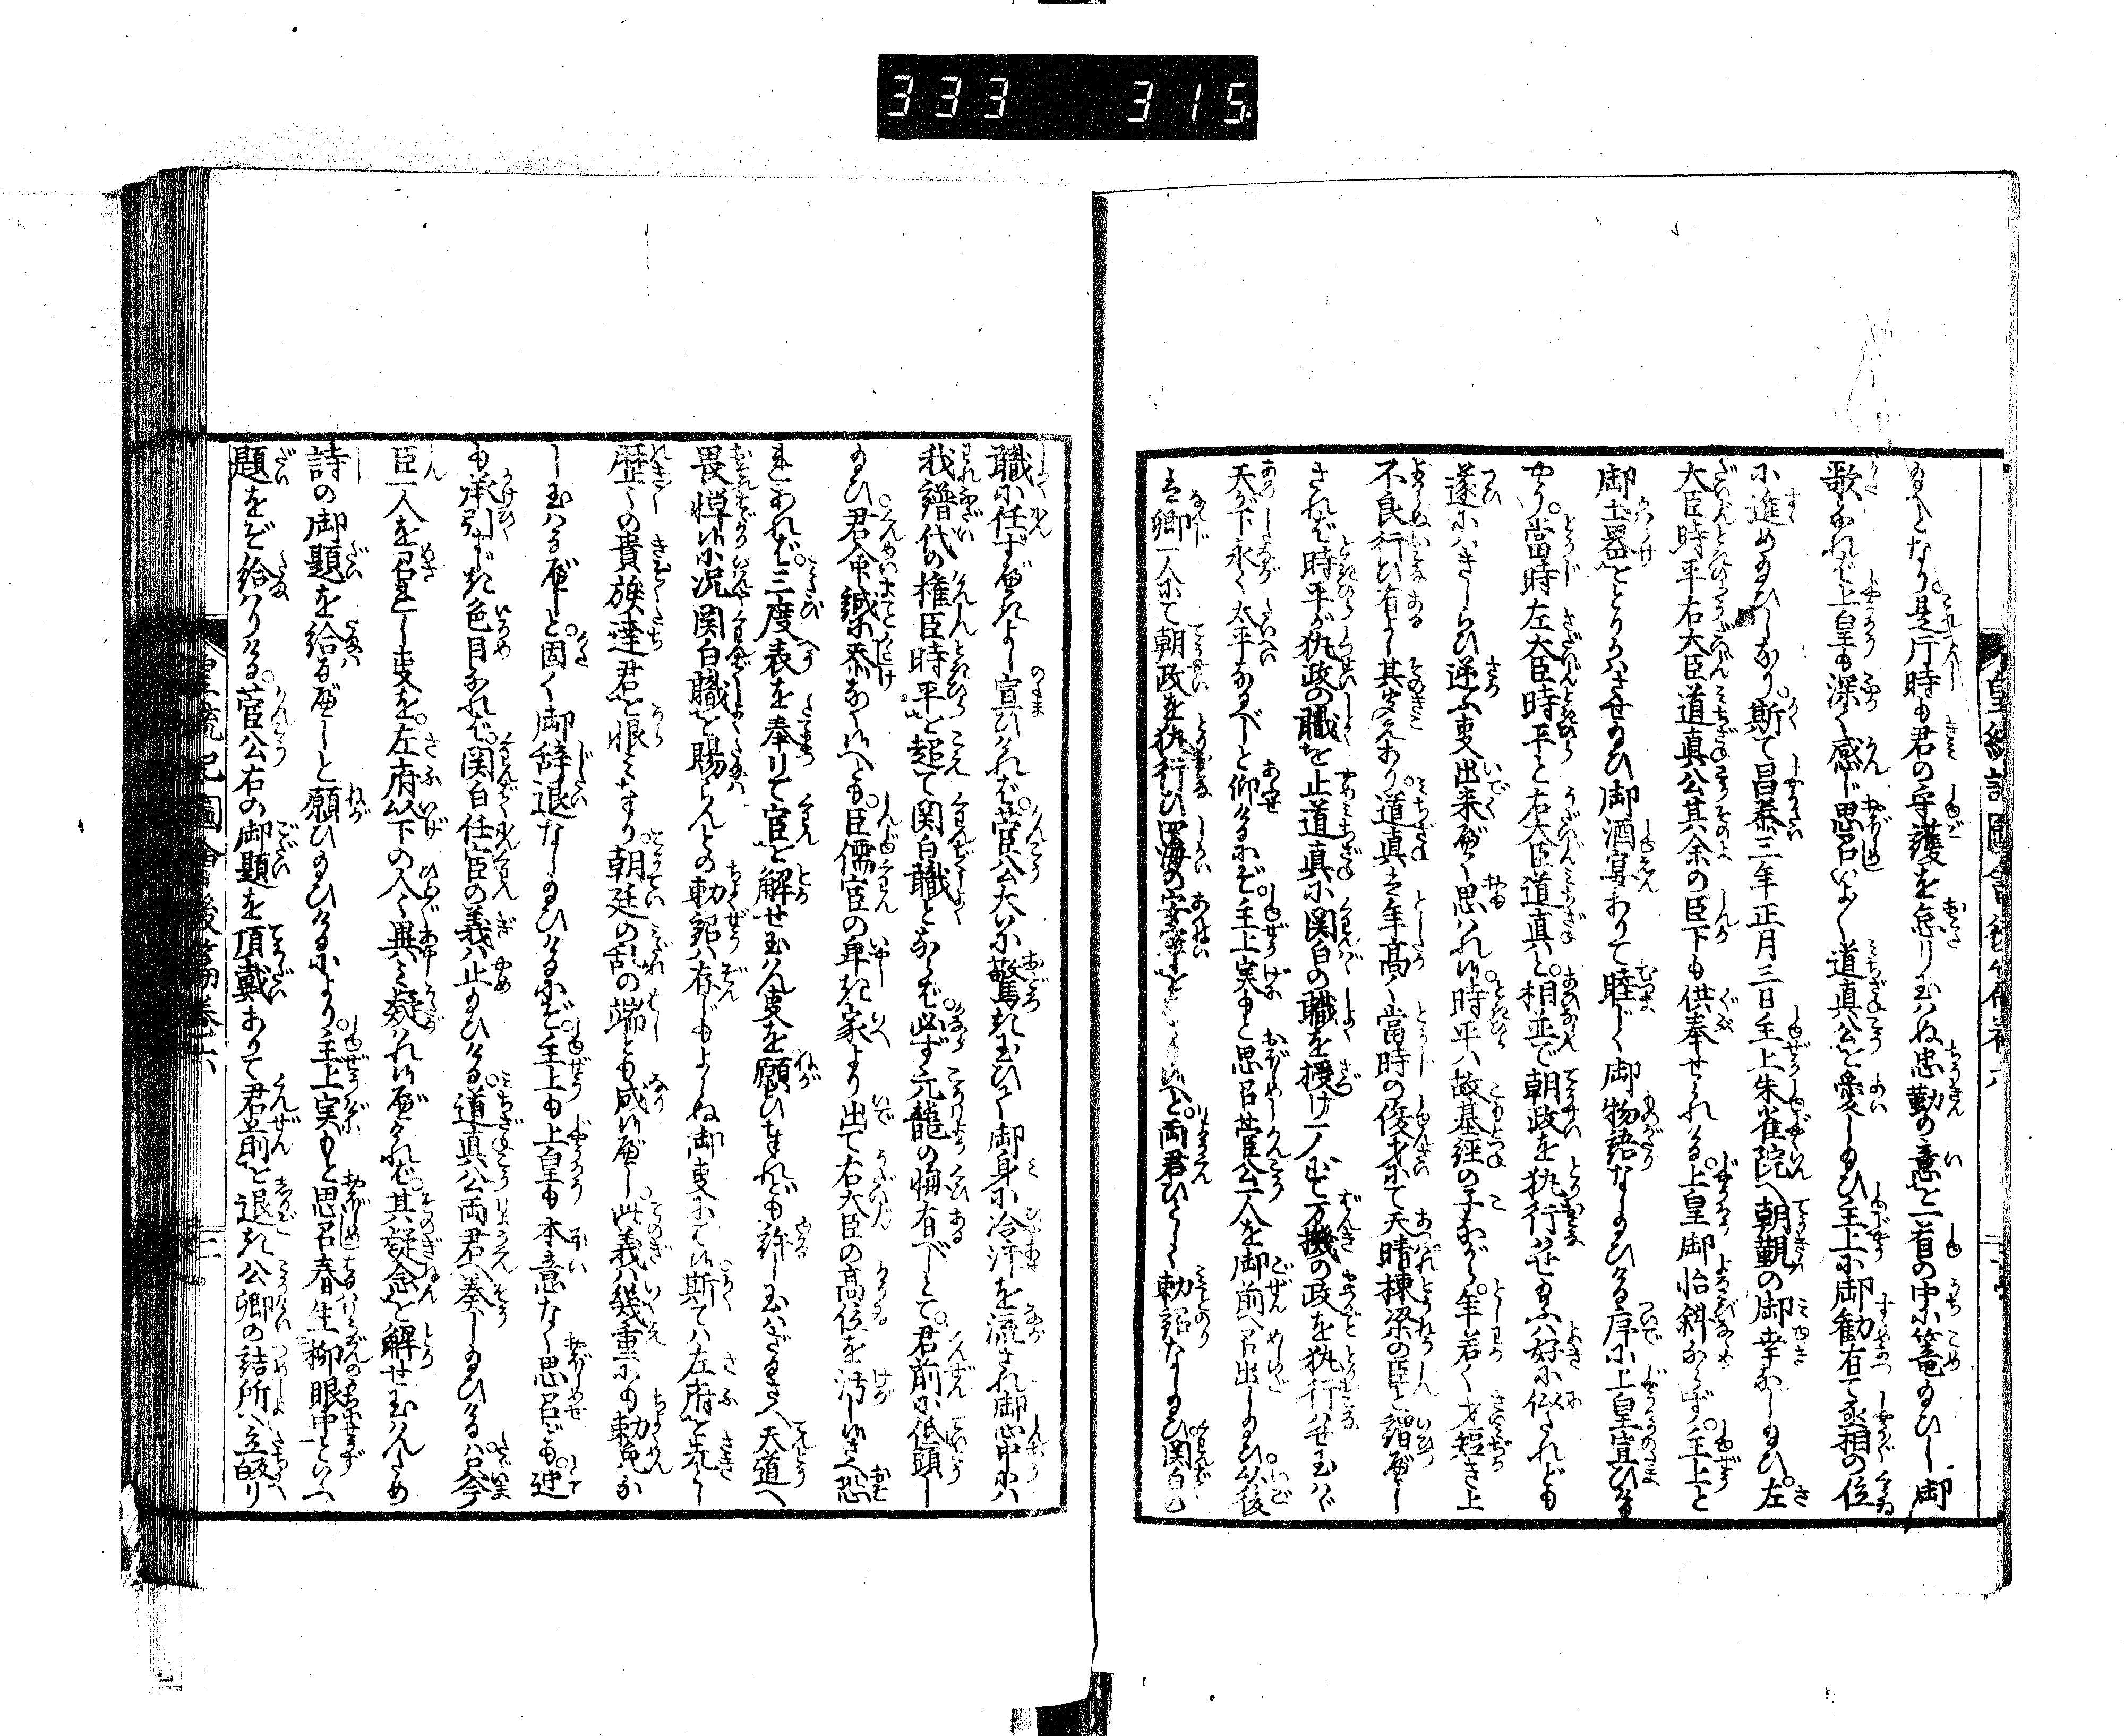 333 315
給へとなり。是片時も君の守護を怠り玉はぬ忠勤の意を一首の中に篭給ひし御
歌なれば上皇も深く感じ思召いよ〱道真公を愛し給ひ主上に御勧有て丞相の位
に進め給ひしなり。斯て昌泰三年正月三日主上朱雀院へ朝覲の御幸なし給ひ。左
大臣時平右大臣道真公其余の臣下も供奉せられける。上皇御怡斜ならず。主上と
御土器をとりかはさせ給ひ御酒宴ありて睦じく御物語なし給ひける序に上皇宣ひける
やう。當時左大臣時平と右大臣道真と。相並で朝政を執行はせ給ふは好に似たれども
遂にはきしらひ逆ふ事出来べく思はれ候。時平は故基経の子ながら。年若く才短き上
不良行ひ有よし其聞えあり。道真は年高く當時の俊才にて天晴棟梁の臣と謂べし
されば時平が執政の職を止道真に関白の職を授け一人にて万機の政を執行はせ玉はゞ
天が下永く太平なるべしと仰けるにぞ。主上実もと思召菅公一人を御前へ召出し給ひ。以後
は卿一人にて朝政を執行ひ四海の安寧を 候へと。両君ひとしく勅詔なし給ひ関白の
職に任ずべきよし宣ひければ。菅公大いに驚き玉ひて御身に冷汗を流され御心中には
我譜代の権臣時平を超て関白職とならば。必ず亢龍の悔有べしとて。君前に低頭し
給ひ。君命誠に忝なく候へども。臣儒官の卑き家より出て右大臣の高位を汚し候さへ恐
れあれば。三度表を奉りて官を解せ玉はん事を願ひ奉れども許し玉はざるさへ天道へ
畏憚り候に况関白職を賜らんとの勅詔は存じもよらぬ御事にて候。斯ては左府を先とし
歴々の貴族達君を恨みまゐり。朝廷の乱の端とも成候べし。此義は幾重にも勅免な
し玉はるべしと。固く御辞退なし給ひけるにぞ。主上も上皇も本意なく思召ども。迚
も承引まじき色目なれば。関白任官の義は止給ひける。道真公両君へ奏し給ひけるは。今
臣一人を召れし事を。左府以下の人々異み疑はれ候べければ。其疑念を解せ玉はんため
詩の御題を給るべしと願ひ給ひけるにより。主上実もと思召春生柳眼中といへる
題をぞ給はりける。菅公右の御題を頂戴ありて君前を退き公卿の結所へ立皈り
皇統記圖會後篇巻六 二